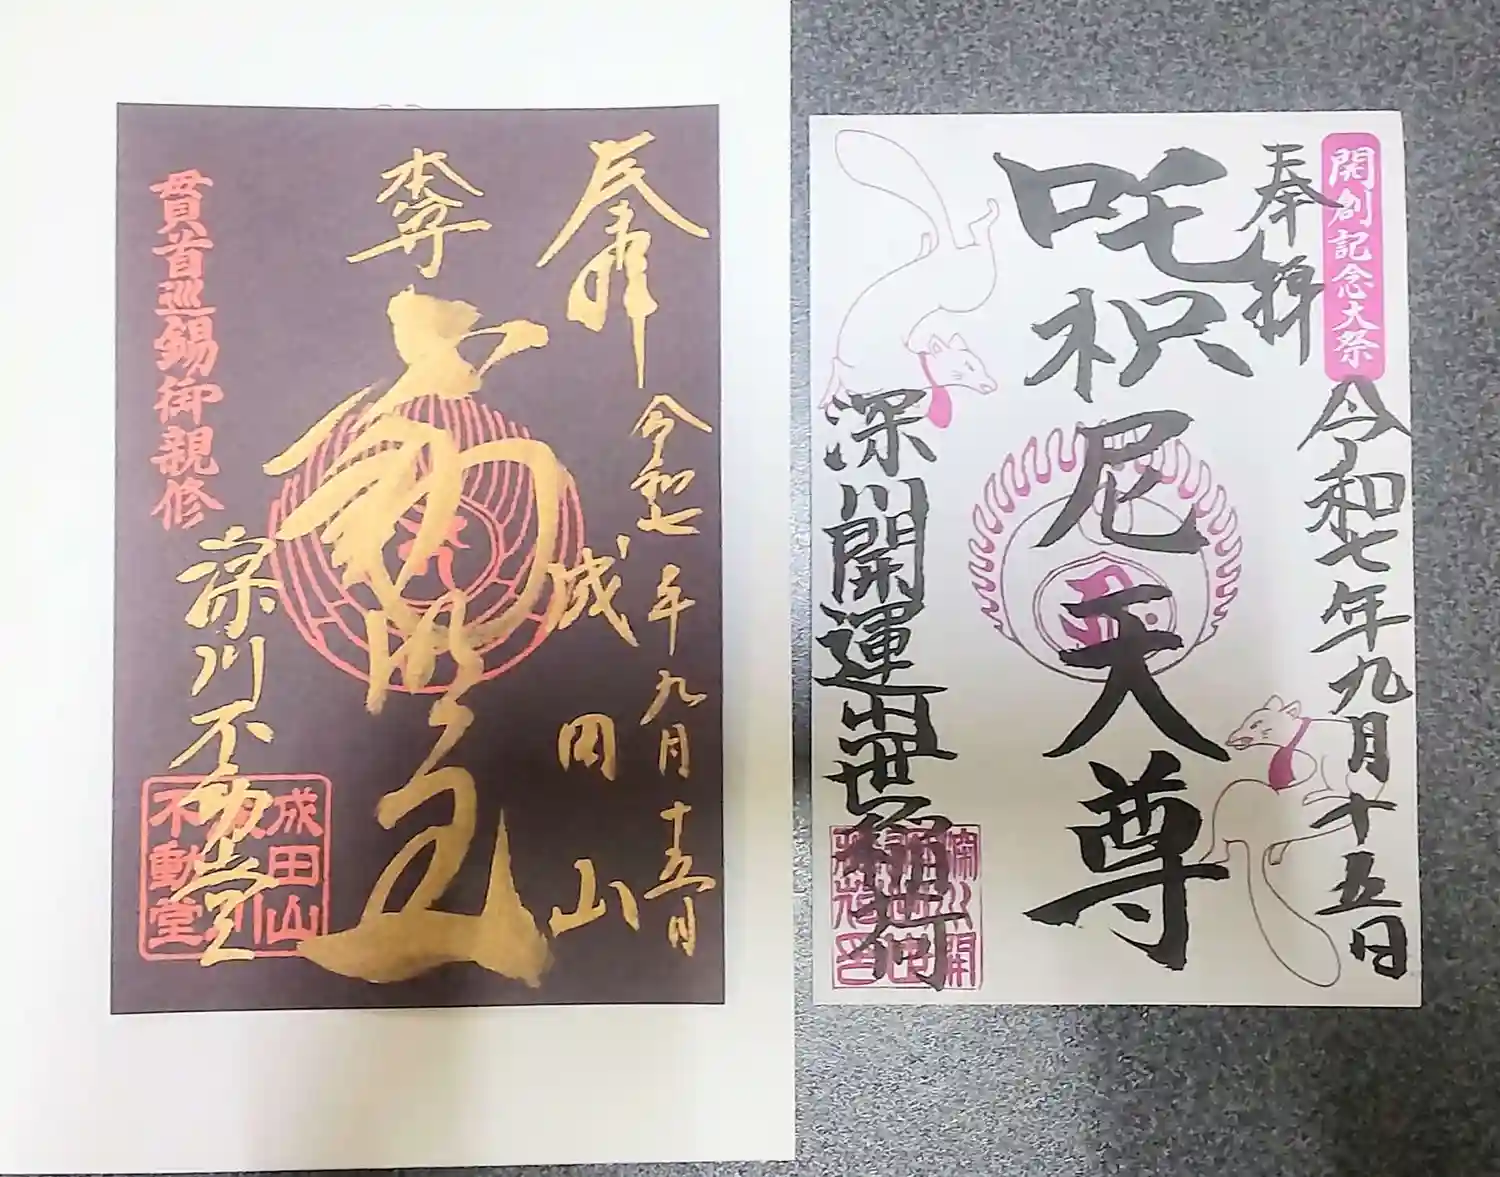 奉拝
令和七年九月十五日
成田山
本尊
不動明王
貫首巡錫御親修
深川不動堂
成田山
不動堂
開創記念大祭
奉拝
令和七年九月十五日
吒枳尼天尊
深川開運出世稲荷